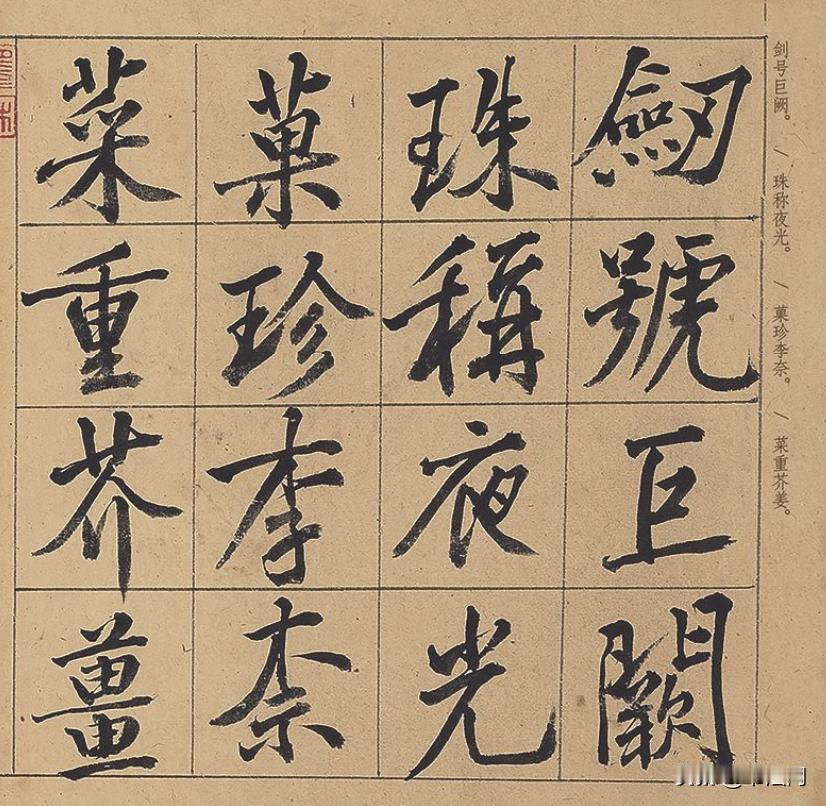 剑号巨阙。/ 珠称夜光。/ 菓珍李奈。/ 菜重芥姜。
劒號巨闕
珠稱夜光
菓珍李柰
菜重芥薑